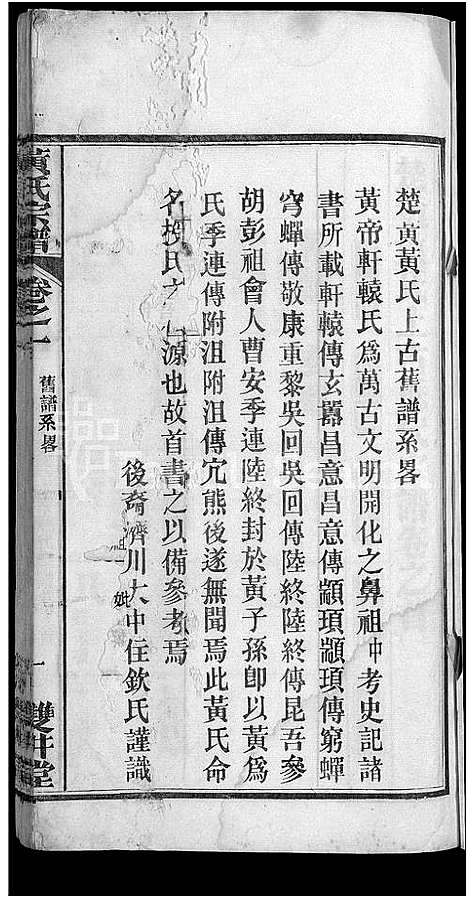 楚黄黃氏上古舊譜系畧
黃帝軒轅氏為萬古文明開化之鼻祖中考史記諸
書所載軒轅傳玄囂昌意昌意傳顓頊顓頊傳窮蟬
穹蟬傳敬康重黎吳回吳回傳陸終陸終傳昆吾參
胡彭祖會人曹安季連陸終封於黃子孫卽以黃為
氏季連傳附沮附沮傳宂熊後遂無聞焉此黃氏命
名授氏之源也故首書之以備參考焉
後裔濟川大中住欽氏謹識
黃氏宗譜
卷之一
舊譜系畧
一
雙井堂